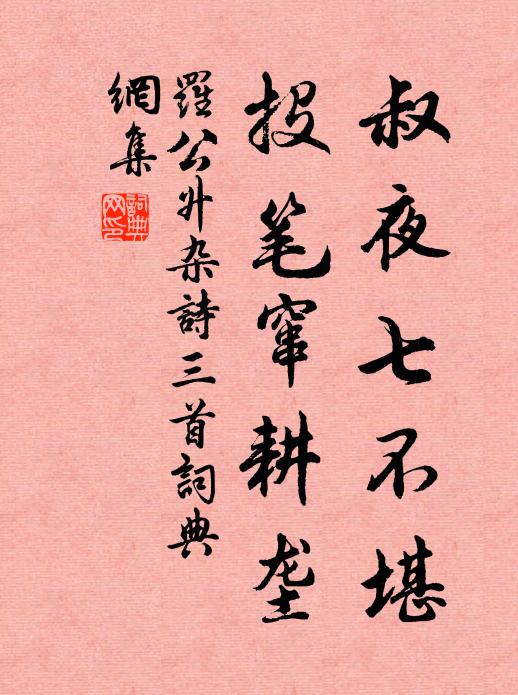 叔夜七不堪
投笔窜耕垄
羅公升杂詩三首詞典
網集
詞典
网印